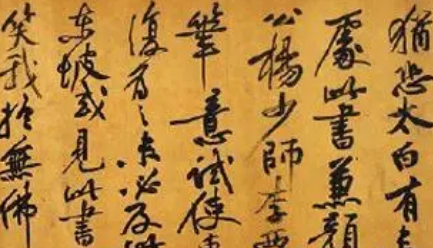 猶恐太白有未
處此書兼顏
公楊少師李西
筆意試使東
復為之未必及此
東坡或見此書
笑我於無佛